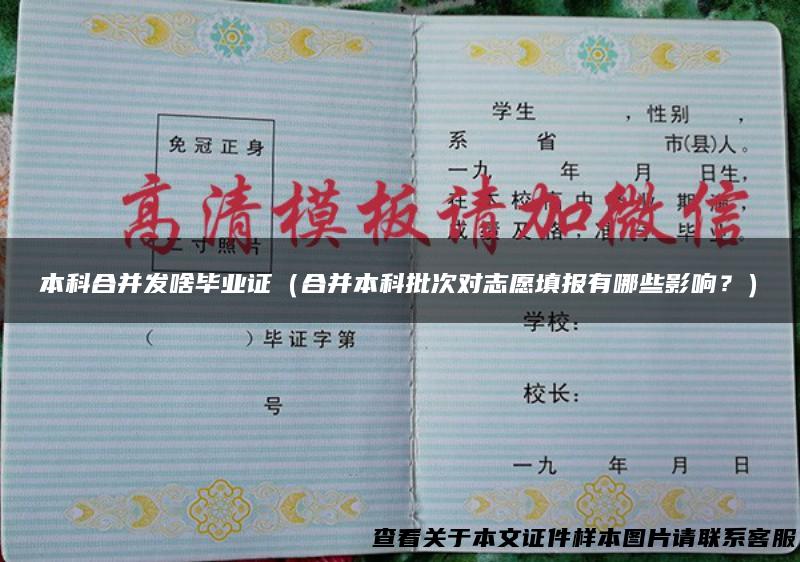 免冠正身
二寸照片
(          )毕证字第
号
学生          ,性别    ,
系      省          市(县)人。
一九      年    月    日生,
学校:
校长:
一九    年    月    日
高清模板请加微信
本科合并发啥毕业证(合并本科批次对志愿填报有哪些影响?)
查看关于本文证件样本图片请联系客服